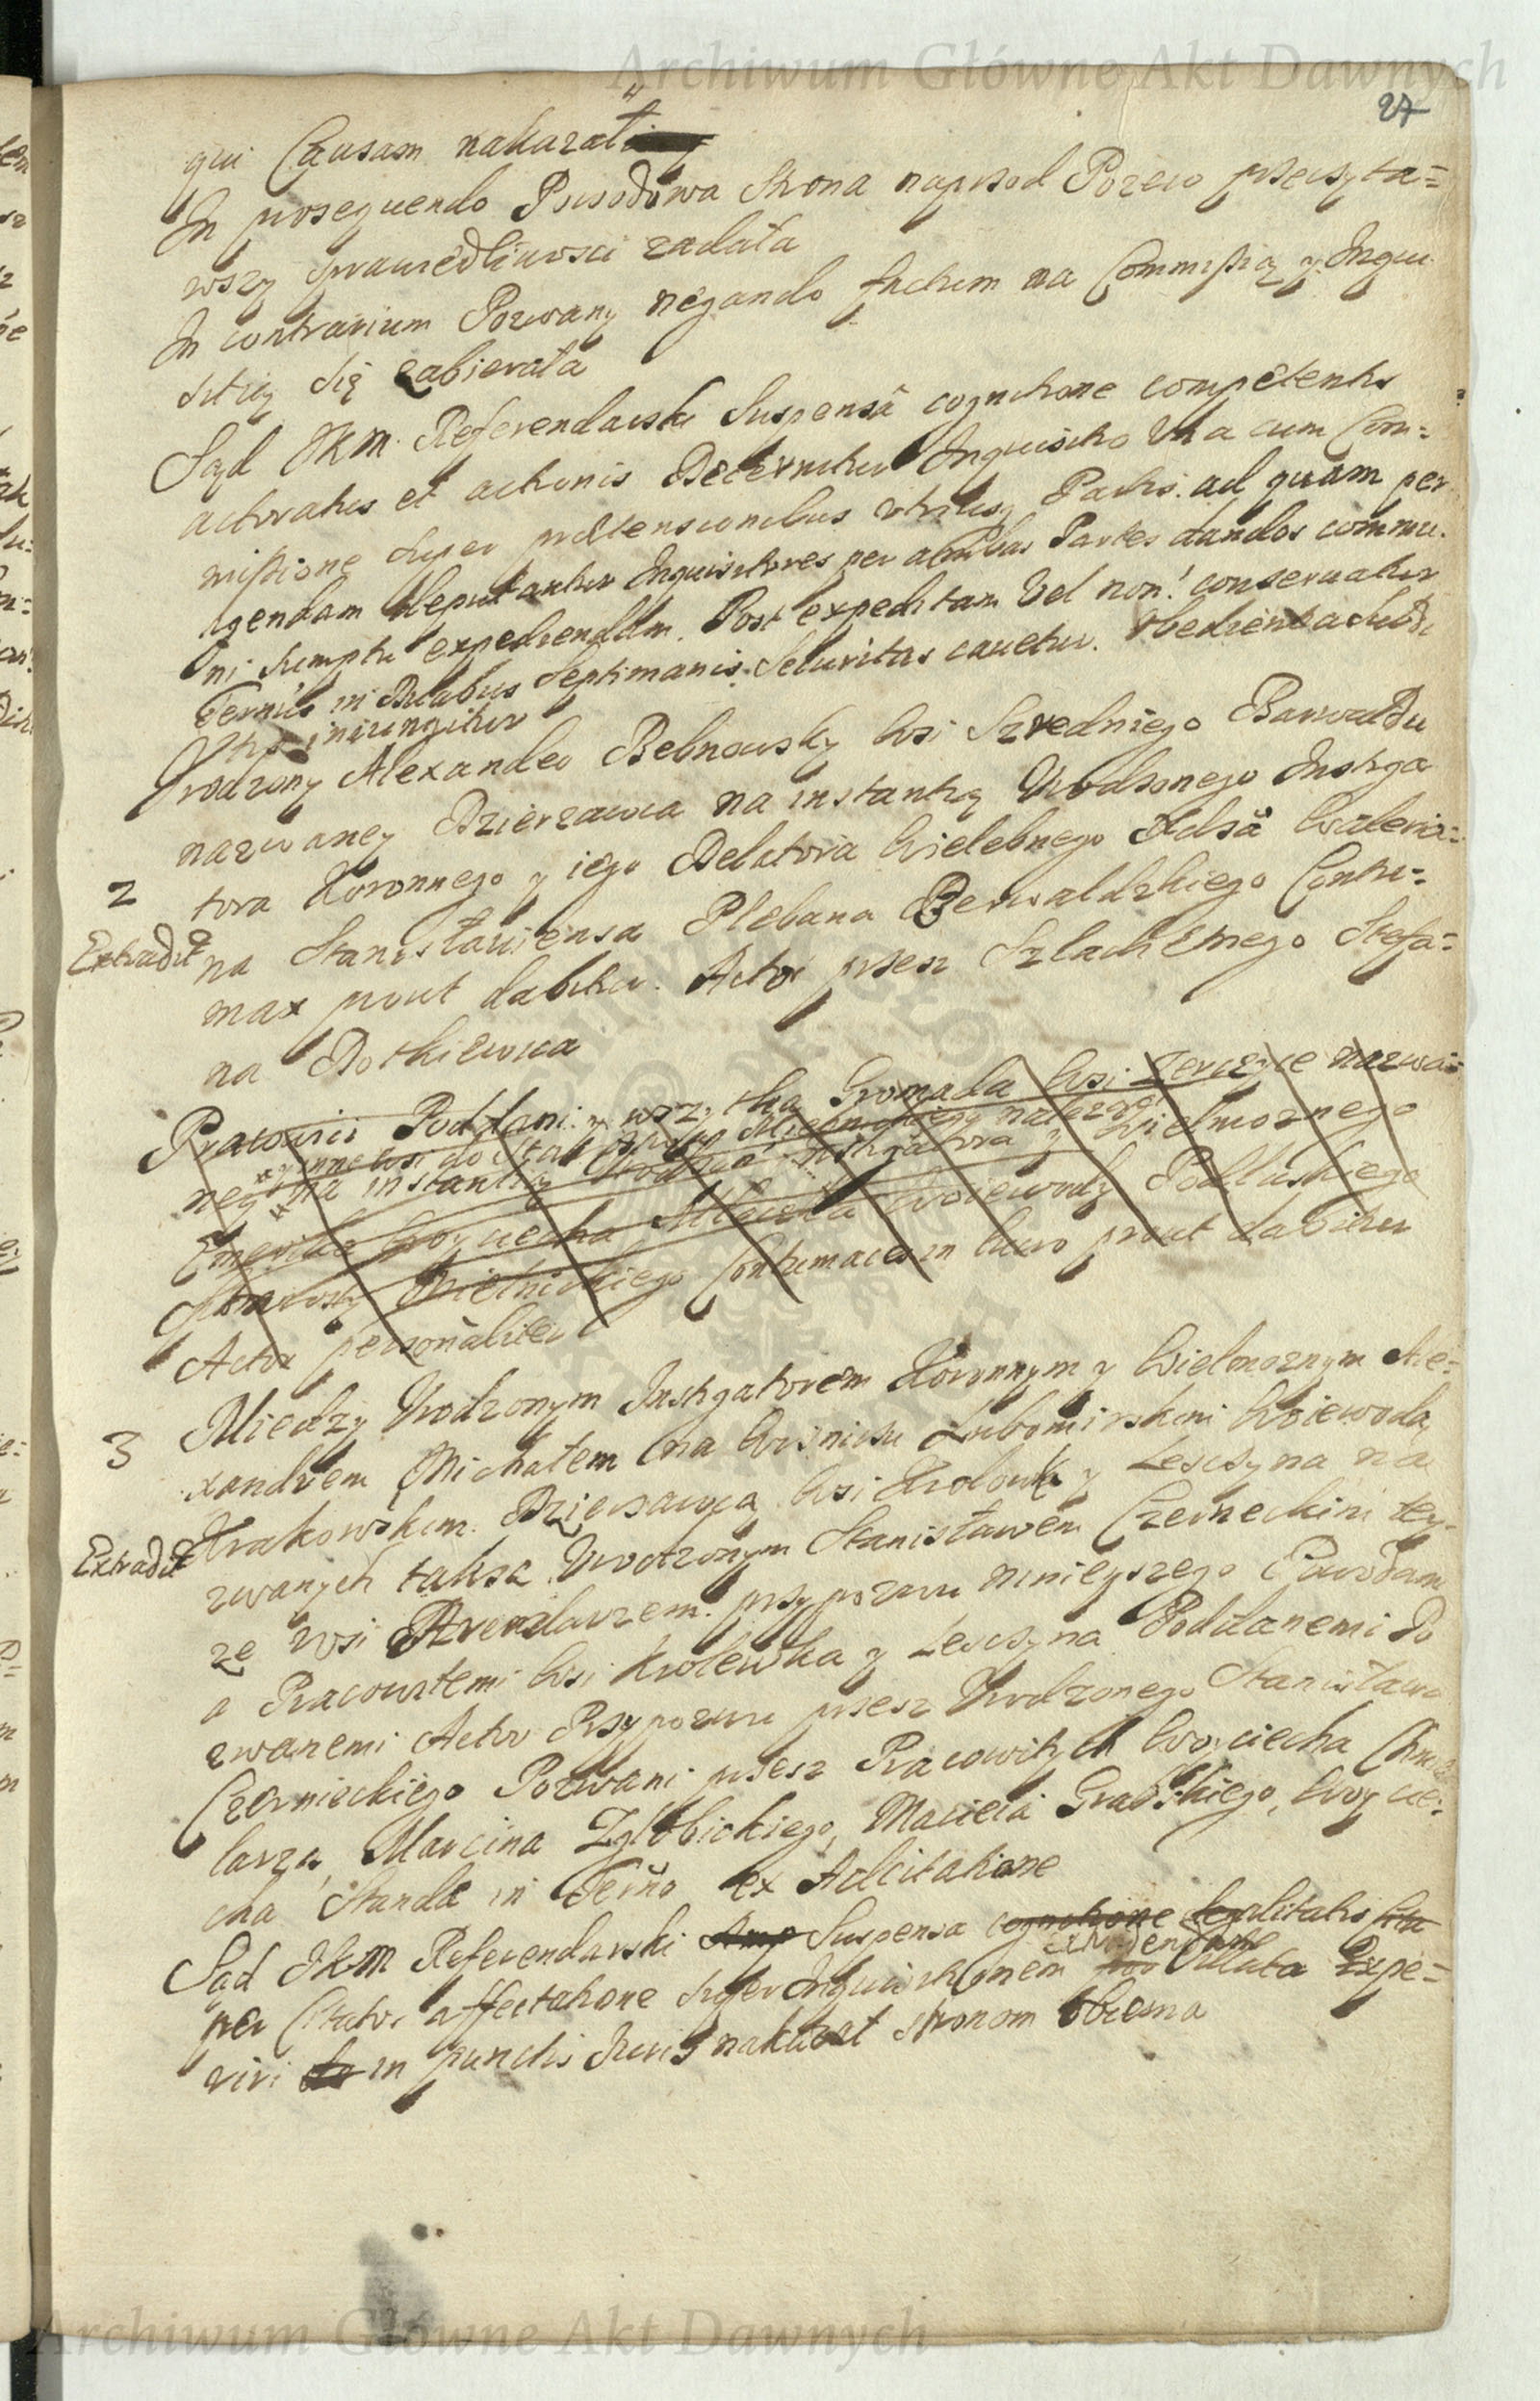 Archiwum Główne Akt Dawnych
27
qui Causam nakazał
In prosequendo Powodowa Strona naprzod Pozew przeczyta=
wszy sprawiedliwosci zadała
In contrarium Pozwany negando factum na Commissią y Inqui
sitią się zabierała
Sąd JKM Referendarski Suspensa cognitione competentis
actoratus et actionis Decernitur Inquisitio Una cum Com=
missione super praetensionibus utriusq Partis. ad quam per
agendam deputantur Inquisitores per ambas Partes dandos commu
ni sumptu expediendam. Post expeditam vel non! conservatur
Terminus in Duabus Septimanis. Securitas cavetur. Obedientia
iniungitur
Urodzony Alexander Bebnowsky Wsi Szredniego Barwałdu
nazwaney Dzierzawca na instantią Urodzonego Instiga
2
tora Koronnego y iego Delatora Wielebnego Xdsa Waleria=
Extradit
na Stanisławiensa Plebana Berwaldzkiego Contu=
max prout dabitur. Actor przez Szlachetnego Stefa=
na Rotkiewica
Pracowici Poddani y wszytka Gromada Wsi Zerczyce nazwa=
y inne wsi do Sta należące
ney na instantią Instigatora y Wielmoznego
Woyciecha Woiewody Podlaskiego
Starosty Mielnickiego Contumaces in lucro prout dabitur
Actor personaliter
Miedzy Urodzonym Instigatorem Koronnym y Wielmoznym Ale=
3
xandrem Michałem na Wisniczu Lubomirskim Woiewodą
Krakowskim. Dzierzawcą Wsi Krolowka y Lesczyna na
Extradit
zwanych takze Urodzonym Stanisławem Czerneckim tey
ze wsi Arendarzem. przypozwu ninieyszego Powodam
a Pracowitemi Wsi Krolewka y Lesczyna Poddanemi Po
zwanemi Actor Przypozwu przez Urodzonego Stanisława
Czernieckiego Pozwani przez Pracowitych Woyciecha
larza, Marcina Zgłobickiego, Macieia Grabskiego, Woycie=
cha Standę in Termino ex Adcitatione
Sąd JKM Referendarski Suspensa cognitione legalitatis
extradendam
per affectatione super Inquisitionem Expe=
riri in punctis Juris nakazał stronom obiema
Archiwum Główne Akt Dawnych